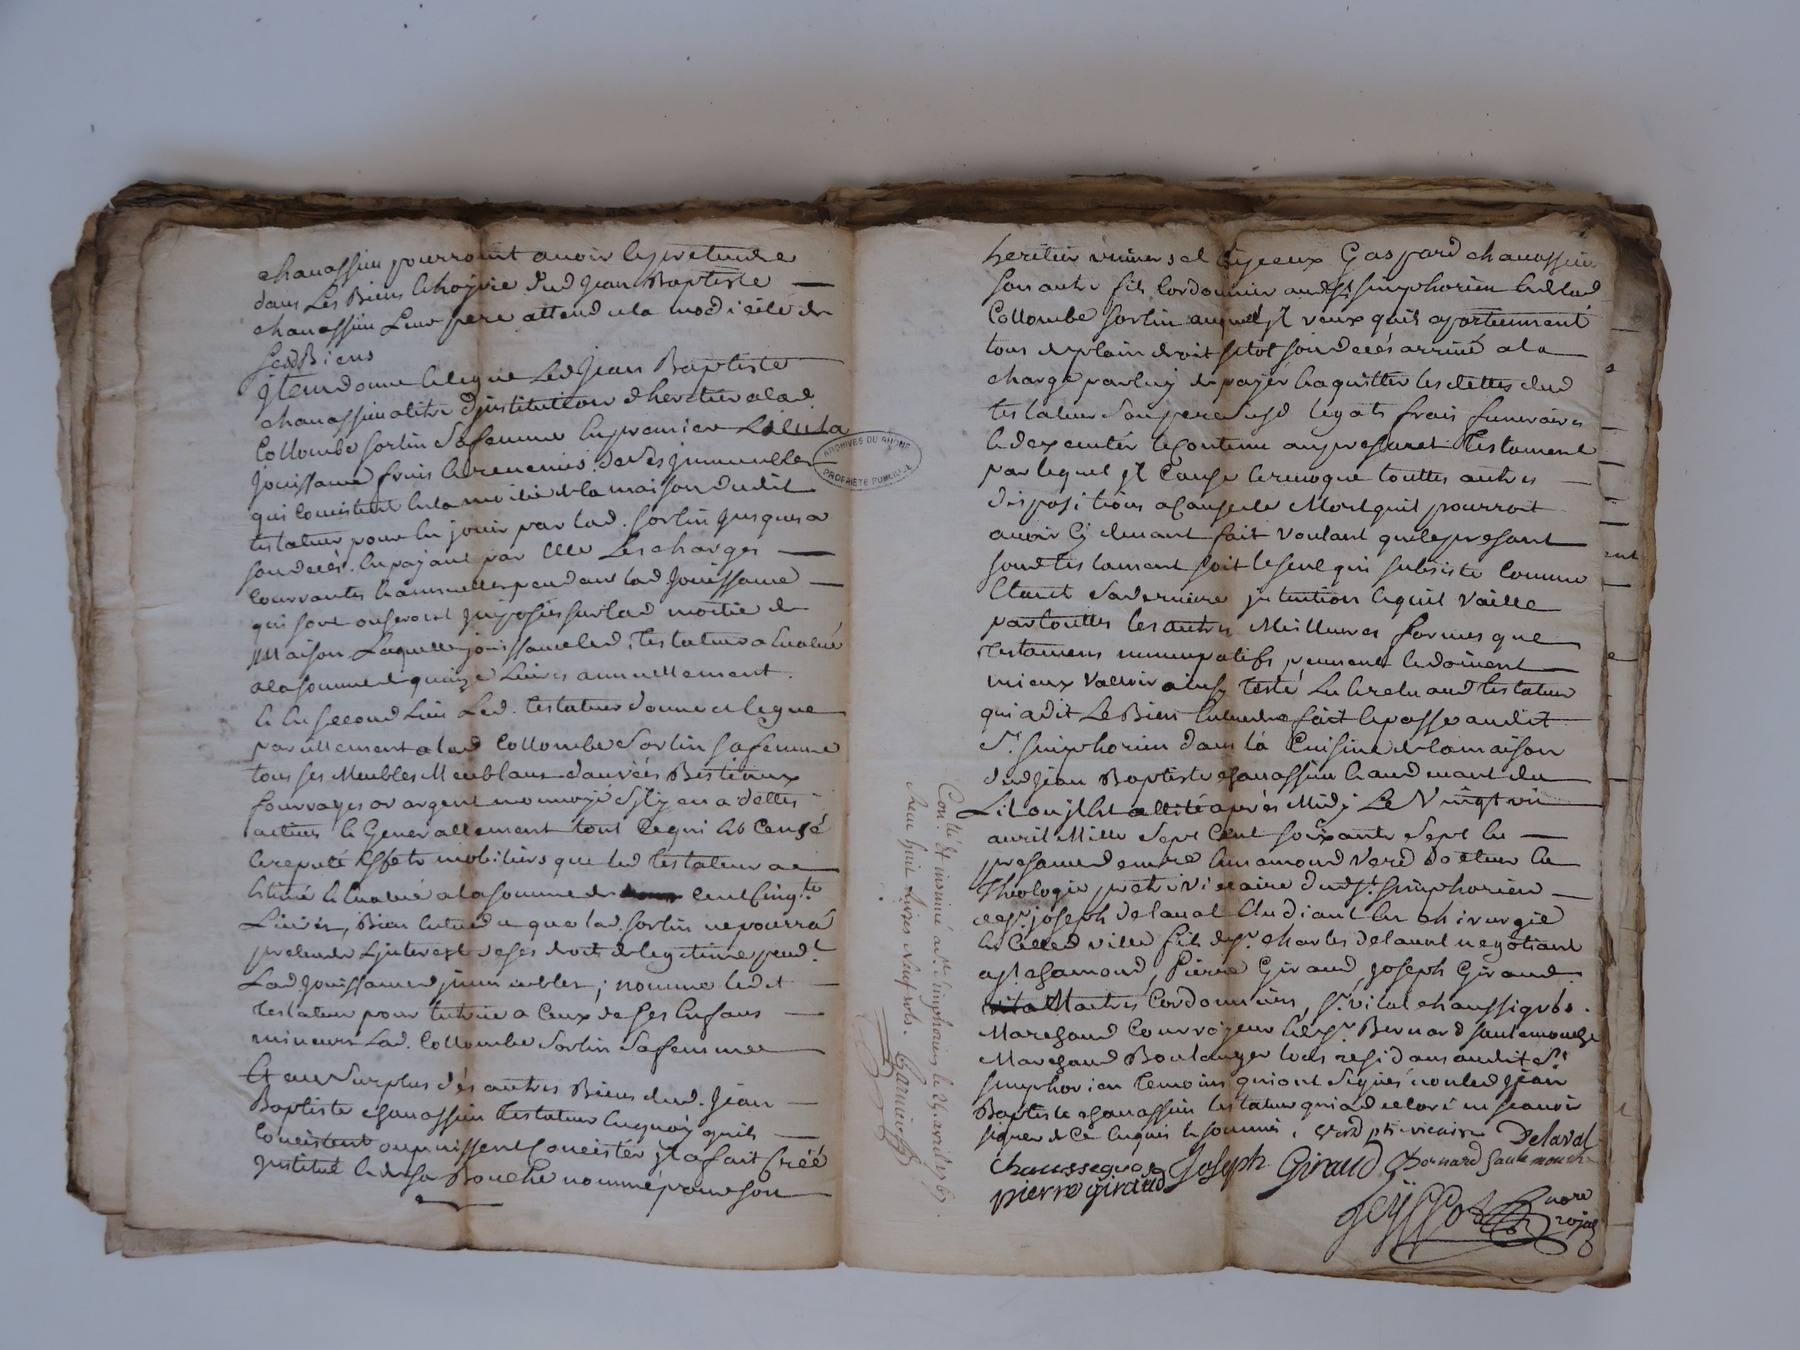 chanassieu pourroint avoir et pretendre
dans Les Biens et hoyrie dud Jean Baptiste
chanassieu Leur pere attendu la modicité de
sesd Biens
Item donne et legue Led Jean Baptiste
chanassieu a titre d'institution d'heretier a lad
Collombe Sorlin Sa femme en premier Lieu La
Jouissance fruis et revenus de Ses Immeubles
qui Consistent en la moitié de la maison dudit
testateur pour en jouir par lad. Sorlin Jusques a
son decés. En payant par Elle Les charges
Courrantes et annuelles pendant lad Jouissance
qui sont ou seront Imposées sur lad moitié de
Maison Laquelle jouissance led. testateur a Evalué
a la somme de quinze Livres annuellement.
Et En second Lieu Led. testateur donne et legue
pareillement a lad Collombe Sorlin Sa femme
tous ses Meubles Meublans danrées Bestiaux
fourrages or argent monnoyé S'il y en a dettes
actives et Generallement tout Ce qui Est Censé
et reputé Effets mobiliers que led testateur a
Estimé et Evalué a la somme de Cent Cinq.te
Livres, Bien Entendu que lad. Sorlin ne pourra
pretendre L'interest de ses droits de legitime pend.t
Lad Jouissance d'immeubles; nomme led.t
Testateur pour tutrice a Ceux de Ses Enfans
mineurs Lad. Collombe Sorlin Sa femme
Et au Surplus dés autres Biens dud. Jean
Baptiste chanassieu testateur En quoy qu'ils
Concistent ou puissent Concister Il a fait Créé
Institué et de Sa Bouche nommé pour son
ARCHIVES DU RHÔNE
PROPRIÉTÉ PUBLIQUE
Con.lé et insinué a S.t Simphorien le 24 avril 1767.
Receu huit livres neuf sols. Garnier
heretier universel Gaspard chanassieu
son autre fils Cordonnier aud St simphorien Et de lad
Collombe Sorlin auquel Il veux qu'ils apartiennent
tous de plain droit sitot son decés arrivé a la
charge par luy de payer et aquitter les dettes dud
testateur Son pere Susd legats frais funeraires
et d'executér le Contenu au present Testament
par lequel Il Casse et revoque touttes autres
dispositions a Cause de Mort quil pourroit
avoir Cy devant fait voulant que le present
son testament soit le seul qui subsiste Comme
Etant sa derniere intention et quil vaille
par touttes les autres Meilleures formes que
Testamens nuncupatifs peuvent et doivent
mieux Valloir ainsy testé Lu et relu aud testateur
qui a dit Le Bien Entendre fait et passé audit
S.t Simphorien dans la Cuisine de la maison
dud Jean Baptiste chanassieu et au devant du
Lit ou il est allité aprés Midy Le Vingt un
avril Mille Sept Cent Soixante Sept En
presence de m.re Annamond Verd docteur En
Theologie pretre vicaire dud S.t Simphorien
de S.r joseph delaval Etudiant En chirurgie
En Cetted ville fils de S.r charles delaval negotiant
a St chamond, Pierre Giraud Joseph Giraud
Maitres Cordonniers, S.r vital chaussegros
Marchand Courroyeur et S.r Bernard Sautemouche
Marchand Boulanger tous residans audit S.t
Simphorien temoins qui ont Signés non led Jean
Baptiste chanassieu testateur qui a declaré ne sçavoir
signer de Ce Enquis et sommé. Verd ptre vicaire Delaval
Chaussegros Joseph Giraud Bernard Sautemouche
pierre giraud
nore
royal